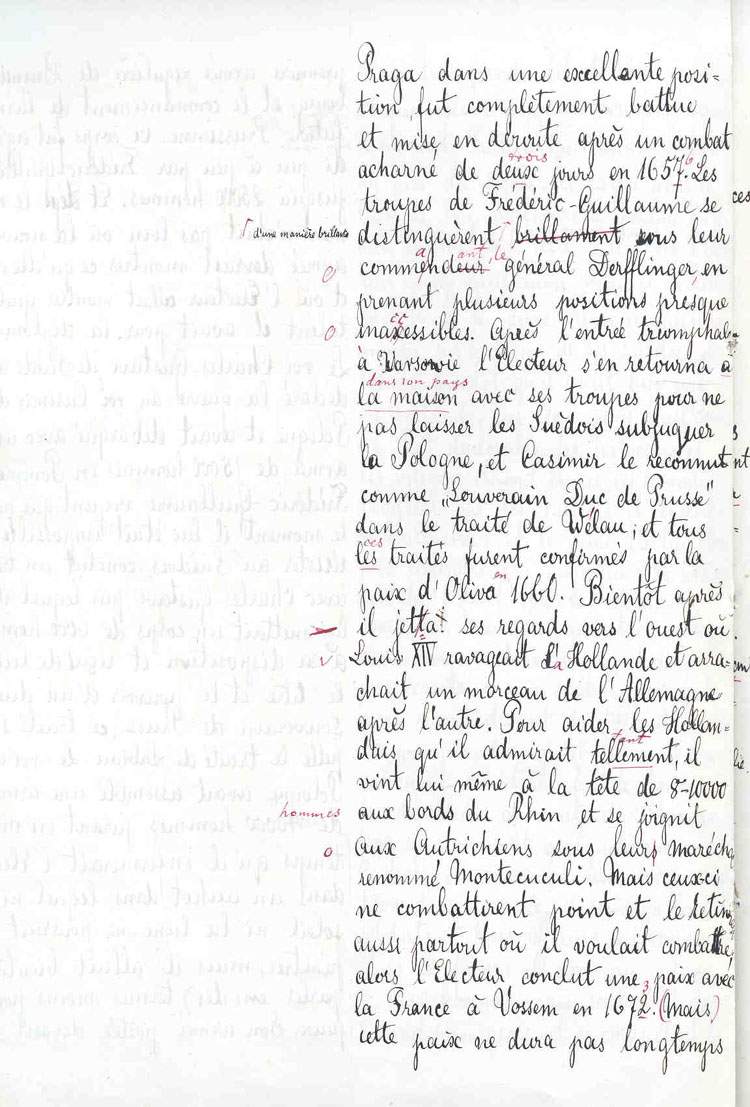 Praga dans une excellente posi=
tion, fut complètement battue
et mise en déroute après un combat
trois
acharné de deux jours en 1657. Les
6
troupes de Frédéric-Guillaume se
d'une manière brillante
distinguèrent brillament sous leur
a ant, le
commendeur général Derfflinger, en
prenant plusieurs positions presque
cc
inaxessibles. Après l'entreé triomphale
à Varsovie l'Electeur s'en retourna à
dans son pays
la maison avec ses troupes pour ne
pas laisser les Suédois subjuguer
la Pologne, et Casimir le reconnut
comme „Souverain Duc de Prusse"
dans le traité de Wélau, et tous
ces
les traités furent confirmés par la
en
paix d'Oliva 1660. Bientôt après
il jetta ses regards vers l'ouest où
Louis XIV ravageait la Hollande et arra=
chait un morceau de l'Allemagne
après l'autre. Pour aider les Hollan=
tant
dais qu'il admirait tellement, il
vint lui-même à la tête de 8-10000
hommes
aux bords du Rhin et se joignit
aux Autrichiens sous leurs maréchal
renommé Montecuculi. Mais ceux-ci
ne combattirent point et le
aussi partout où il voulait combattre,
alors l'Electeur conclut une paix avec
3
la France à Vossem en 1672. (Mais)
cette paix ne dura pas longtemps